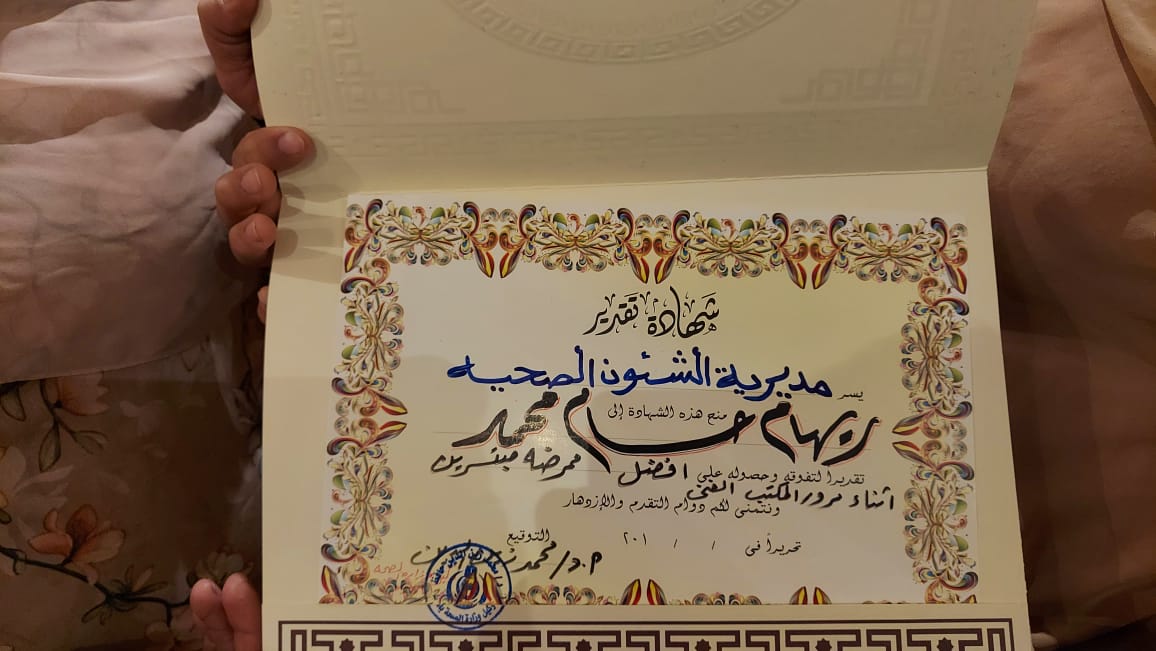 شهادة تقدير
يسر مديرية الشئون الصحيه
منح هذه الشهادة إلى
ريهام حسام محمد
تقديراً لتفوقه وحصوله على افضل ممرضه مبتسرين
اثناء مرور المكتب الفنى
ونتمنى لكم دوام التقدم والإزدهار
تحريراً فى / / ٢٠١
التوقيع
م.د/ محمد